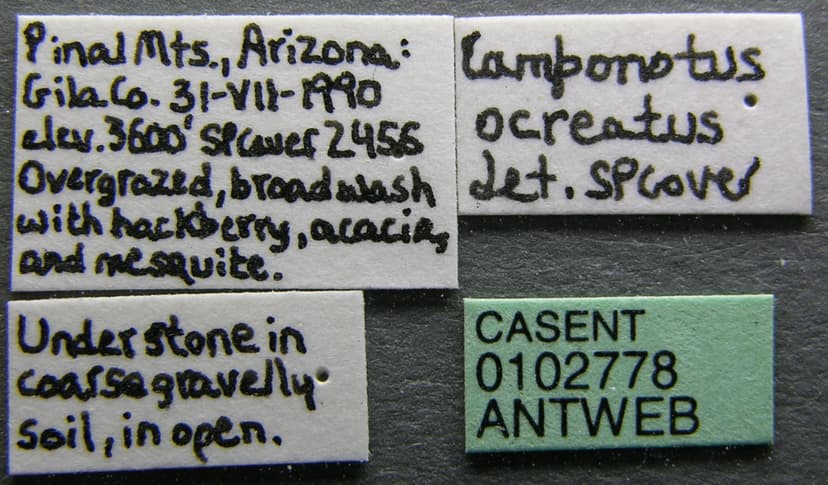 Pinal Mts., Arizona:
Gila Co. 31-VII-1990
elev. 3600' SPCover 2456
Overgrazed, broad wash
with hackberry, acacia,
and mesquite.
Camponotus
ocreatus
det. SPCover
Under stone in
coarse gravelly
soil, in open.
CASENT
0102778
ANTWEB